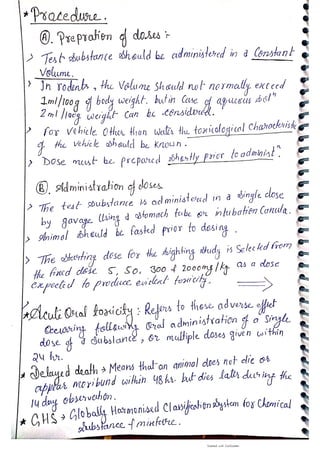 * Procedure.
Ⓐ. Prepration of doses :-
> Test substance should be administered in a Constant
Volume.
> In rodents, the Volume should not normally exceed
1ml/100g of body weight. but in case of aqueous sol"
2ml/100g weight can be considered.
> for vehicle other than water the toxicological Characteristic
of the vehicle should be known.
> Dose must be prepared shortly prior to administ".
Ⓑ. Administration of doses
> The test substance is administered in a single dose
by gavage using a stomach tube or intubation Canula.
> Animal should be fasted prior to dosing.
> The starting dose for the sighting study is selected from
the fixed dose 5, 50, 300 & 2000mg/kg as a dose
expected to produce evident toxicity.
* Acute Oral toxicity : Refers to those adverse effet
Occuring following Oral administration of a Single
dose of a Substance, or multiple doses given within
24 hr.
* Delayed death → Means that an animal does not die or
appear moribund within 48 hr. but dies later during the
14 day observation.
* GHS → Globally Harmonised Classification System for Chemical
substance & mixture.
Scanned with CamScanner